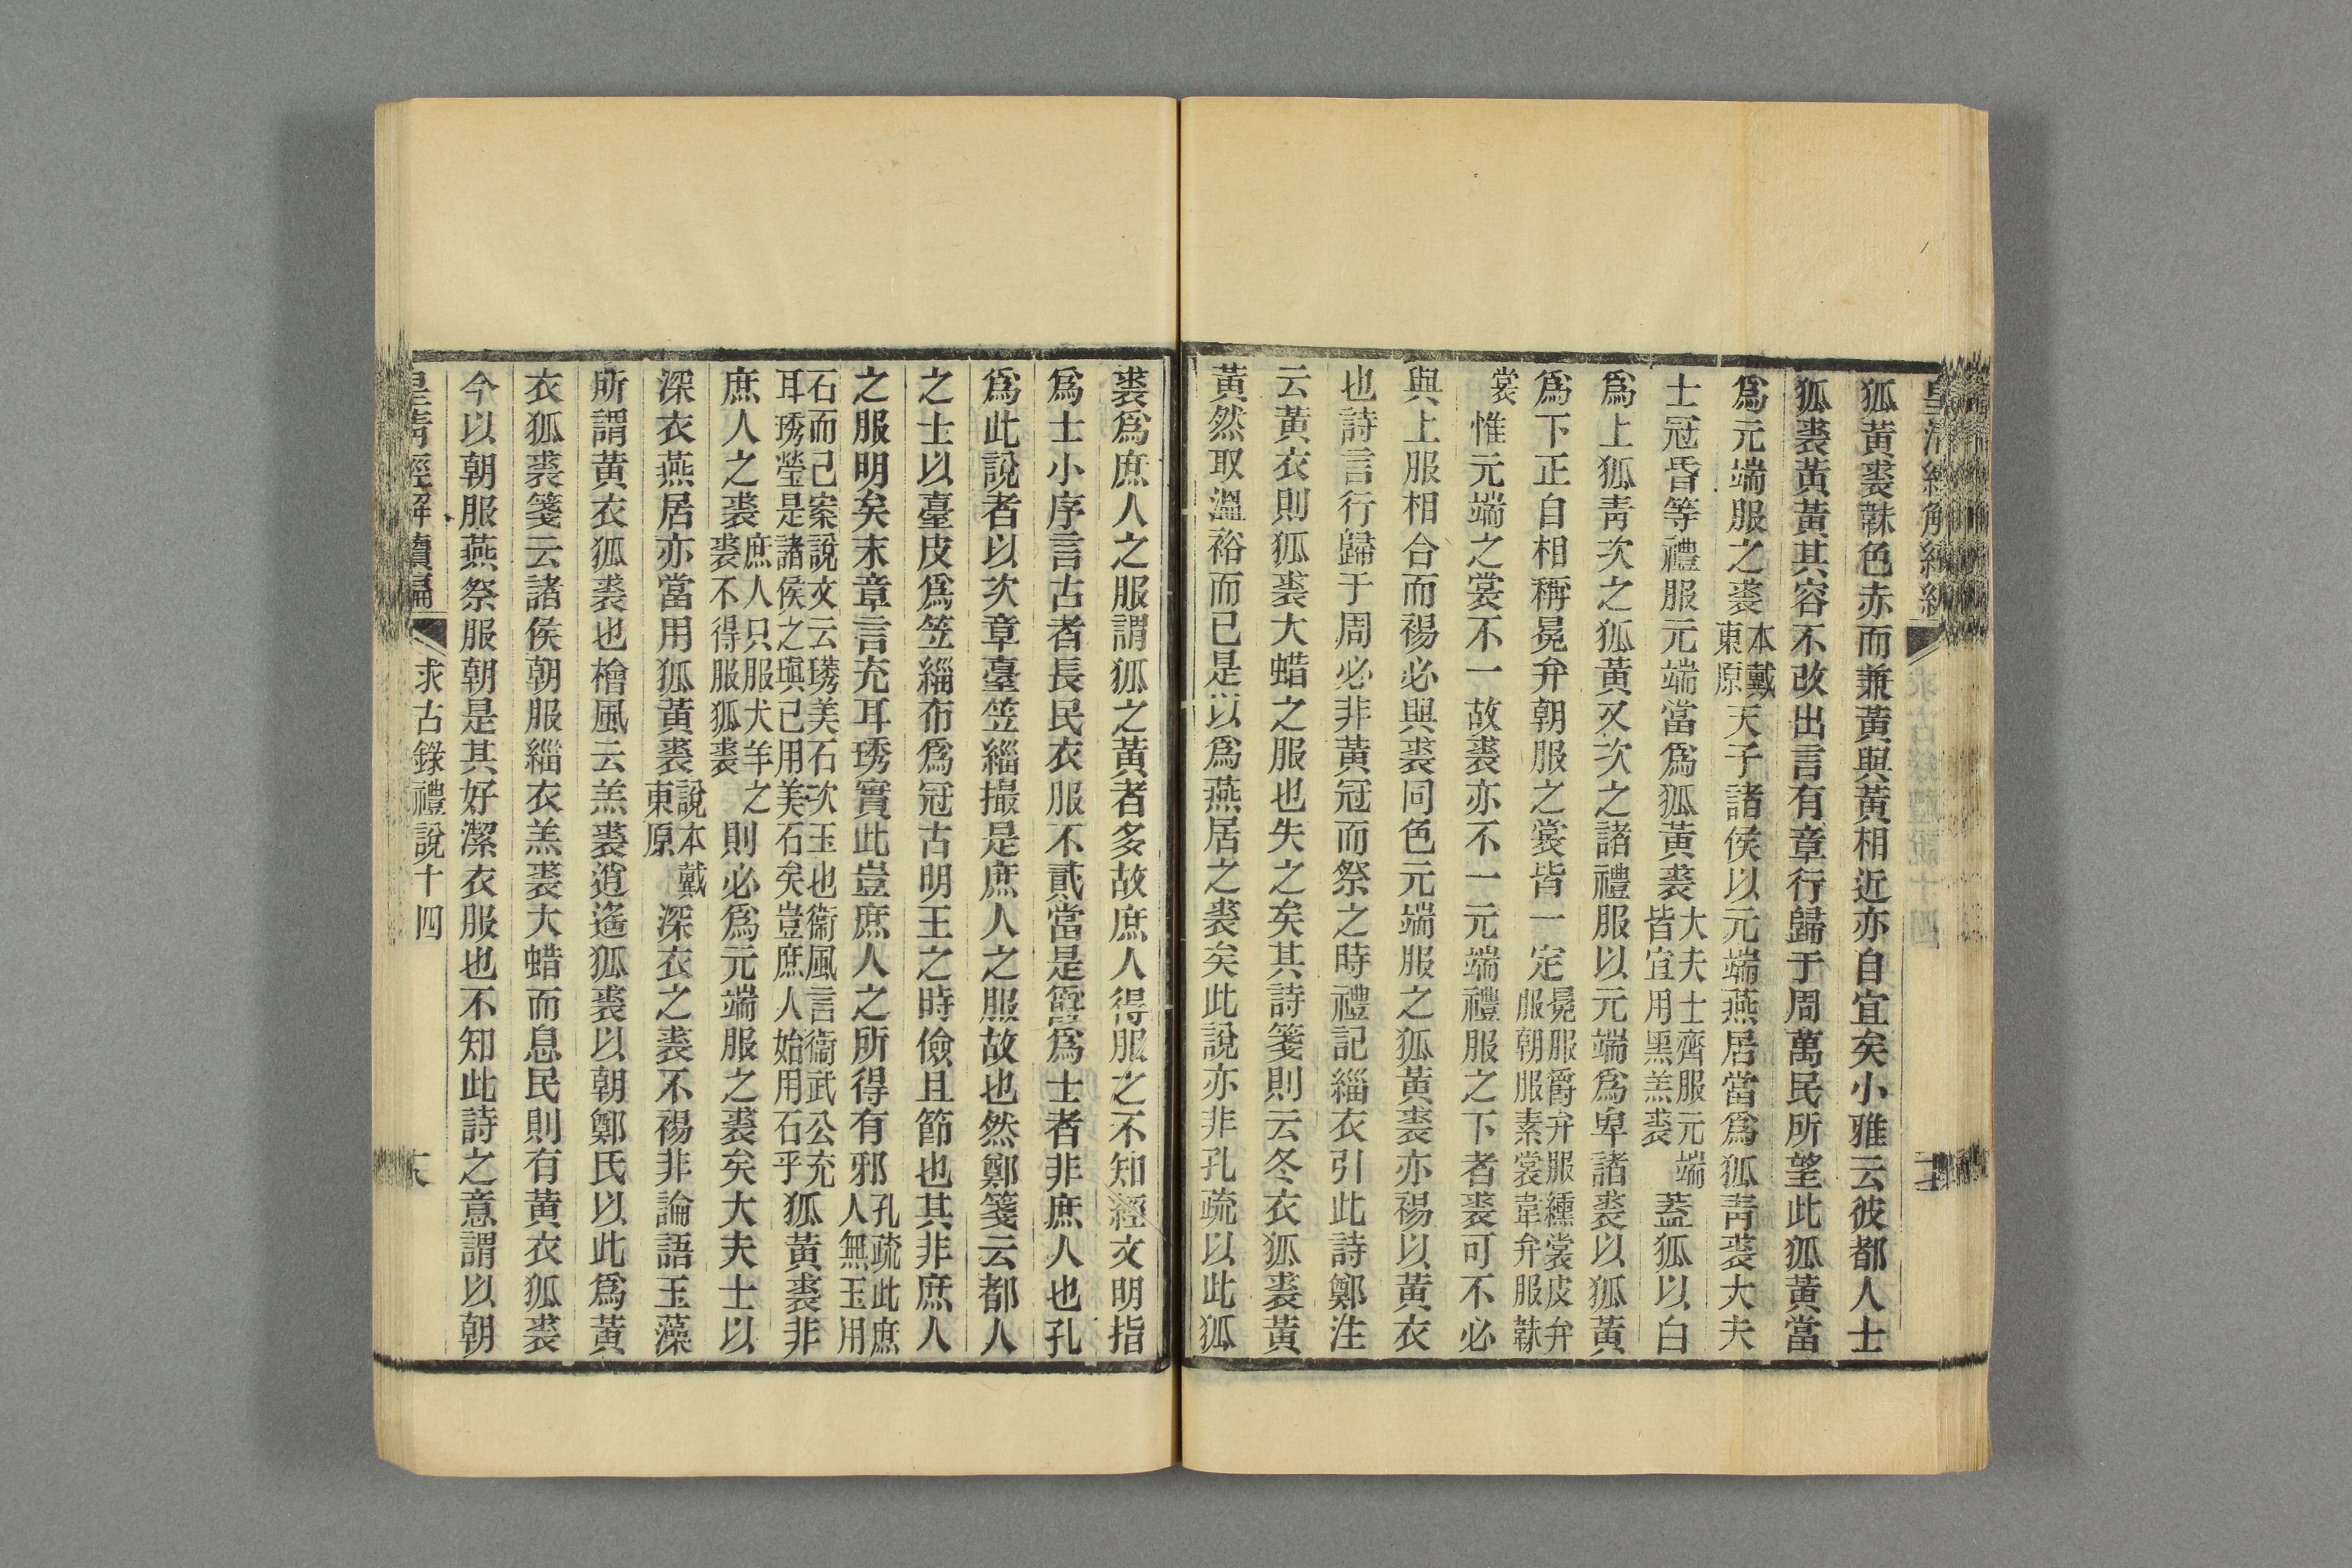 狐黃裘韎色赤而兼黃與黃相近亦自宜矣小雅云彼都人士
狐裘黃黃其容不改出言有章行歸于周萬民所望此狐黃當
爲元端服之裘本戴東原天子諸侯以元端燕居當爲狐靑裘大夫
士冠昏等禮服元端當爲狐黃裘大夫士齊服元端皆宜用黑羔裘蓋狐以白
爲上狐靑次之狐黃又次之諸禮服以元端爲卑諸裘以狐黃
爲下正自相稱冕弁朝服之裳皆一定冕服爵弁服纁裳皮弁服朝服素裳韋弁服韎
裳惟元端之裳不一故裘亦不一元端禮服之下者裘可不必
與上服相合而裼必與裘同色元端服之狐黃裘亦裼以黃衣
也詩言行歸于周必非黃冠而祭之時禮記緇衣引此詩鄭注
云黃衣則狐裘大蜡之服也失之矣其詩箋則云冬衣狐裘黃
黃然取溫裕而已是以爲燕居之裘矣此說亦非孔疏以此狐
裘爲庶人之服謂狐之黃者多故庶人得服之不知經文明指
爲士小序言古者長民衣服不貳當是爵爲士者非庶人也孔
爲此說者以次章臺笠緇撮是庶人之服故也然鄭箋云都人
之士以臺皮爲笠緇布爲冠古明王之時儉且節也其非庶人
之服明矣末章言充耳琇實此豈庶人之所得有邪孔疏此庶人無玉用
石而已案說文云璓美石次玉也衞風言衞武公充耳琇瑩是諸侯之瑱已用美石矣豈庶人始用石乎狐黃裘非
庶人之裘庶人只服犬羊之裘不得服狐裘則必爲元端服之裘矣大夫士以
深衣燕居亦當用狐黃裘說本戴東原深衣之裘不裼非論語玉藻
所謂黃衣狐裘也檜風云羔裘逍遙狐裘以朝鄭氏以此爲黃
衣狐裘箋云諸侯朝服緇衣羔裘大蜡而息民則有黃衣狐裘
今以朝服燕祭服朝是其好潔衣服也不知此詩之意謂以朝
皇淸經解續編
求古錄禮說十四